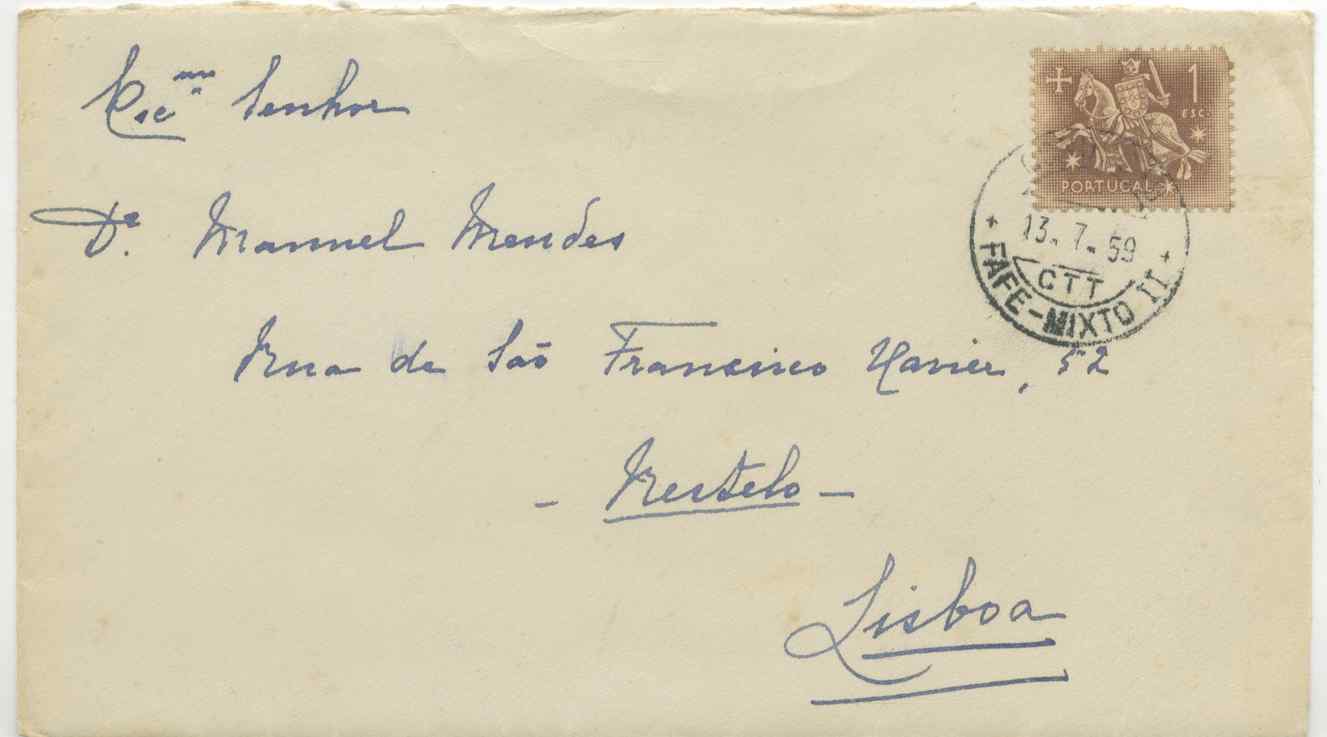 Exc.mo Senhor
Dr. Manuel Mendes
Rua de São Francisco Xavier, 52
- Restelo -
Lisboa
1
ESC.
PORTUGAL
13. 7. 59
CTT
FAFE-MIXTO II